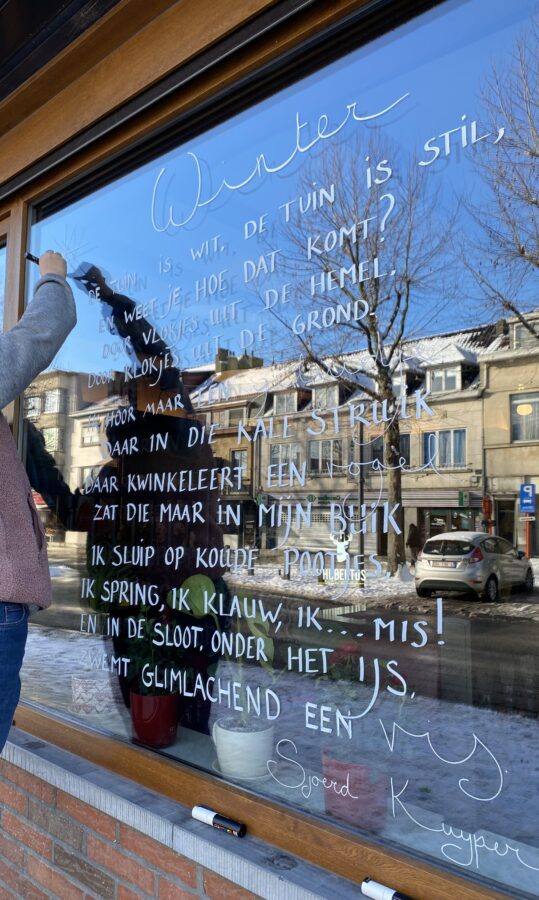 Winter
DE TUIN IS WIT, DE TUIN IS STIL,
EN WEET JE HOE DAT KOMT?
DOOR VLOKJES UIT DE HEMEL.
DOOR KLOKJES UIT DE GROND.
HOOR MAAR EEN
DAAR IN DIE KALE STRUIK
DAAR KWINKELEERT EEN vogel
ZAT DIE MAAR IN MIJN BUIK
IK SLUIP OP KOUDE POOTJES,
IK SPRING, IK KLAUW, IK.... MIS!
EN IN DE SLOOT, ONDER HET IJS,
ZWEMT GLIMLACHEND EEN vis.
Sjoerd Kuyper
HUBERTUS
P